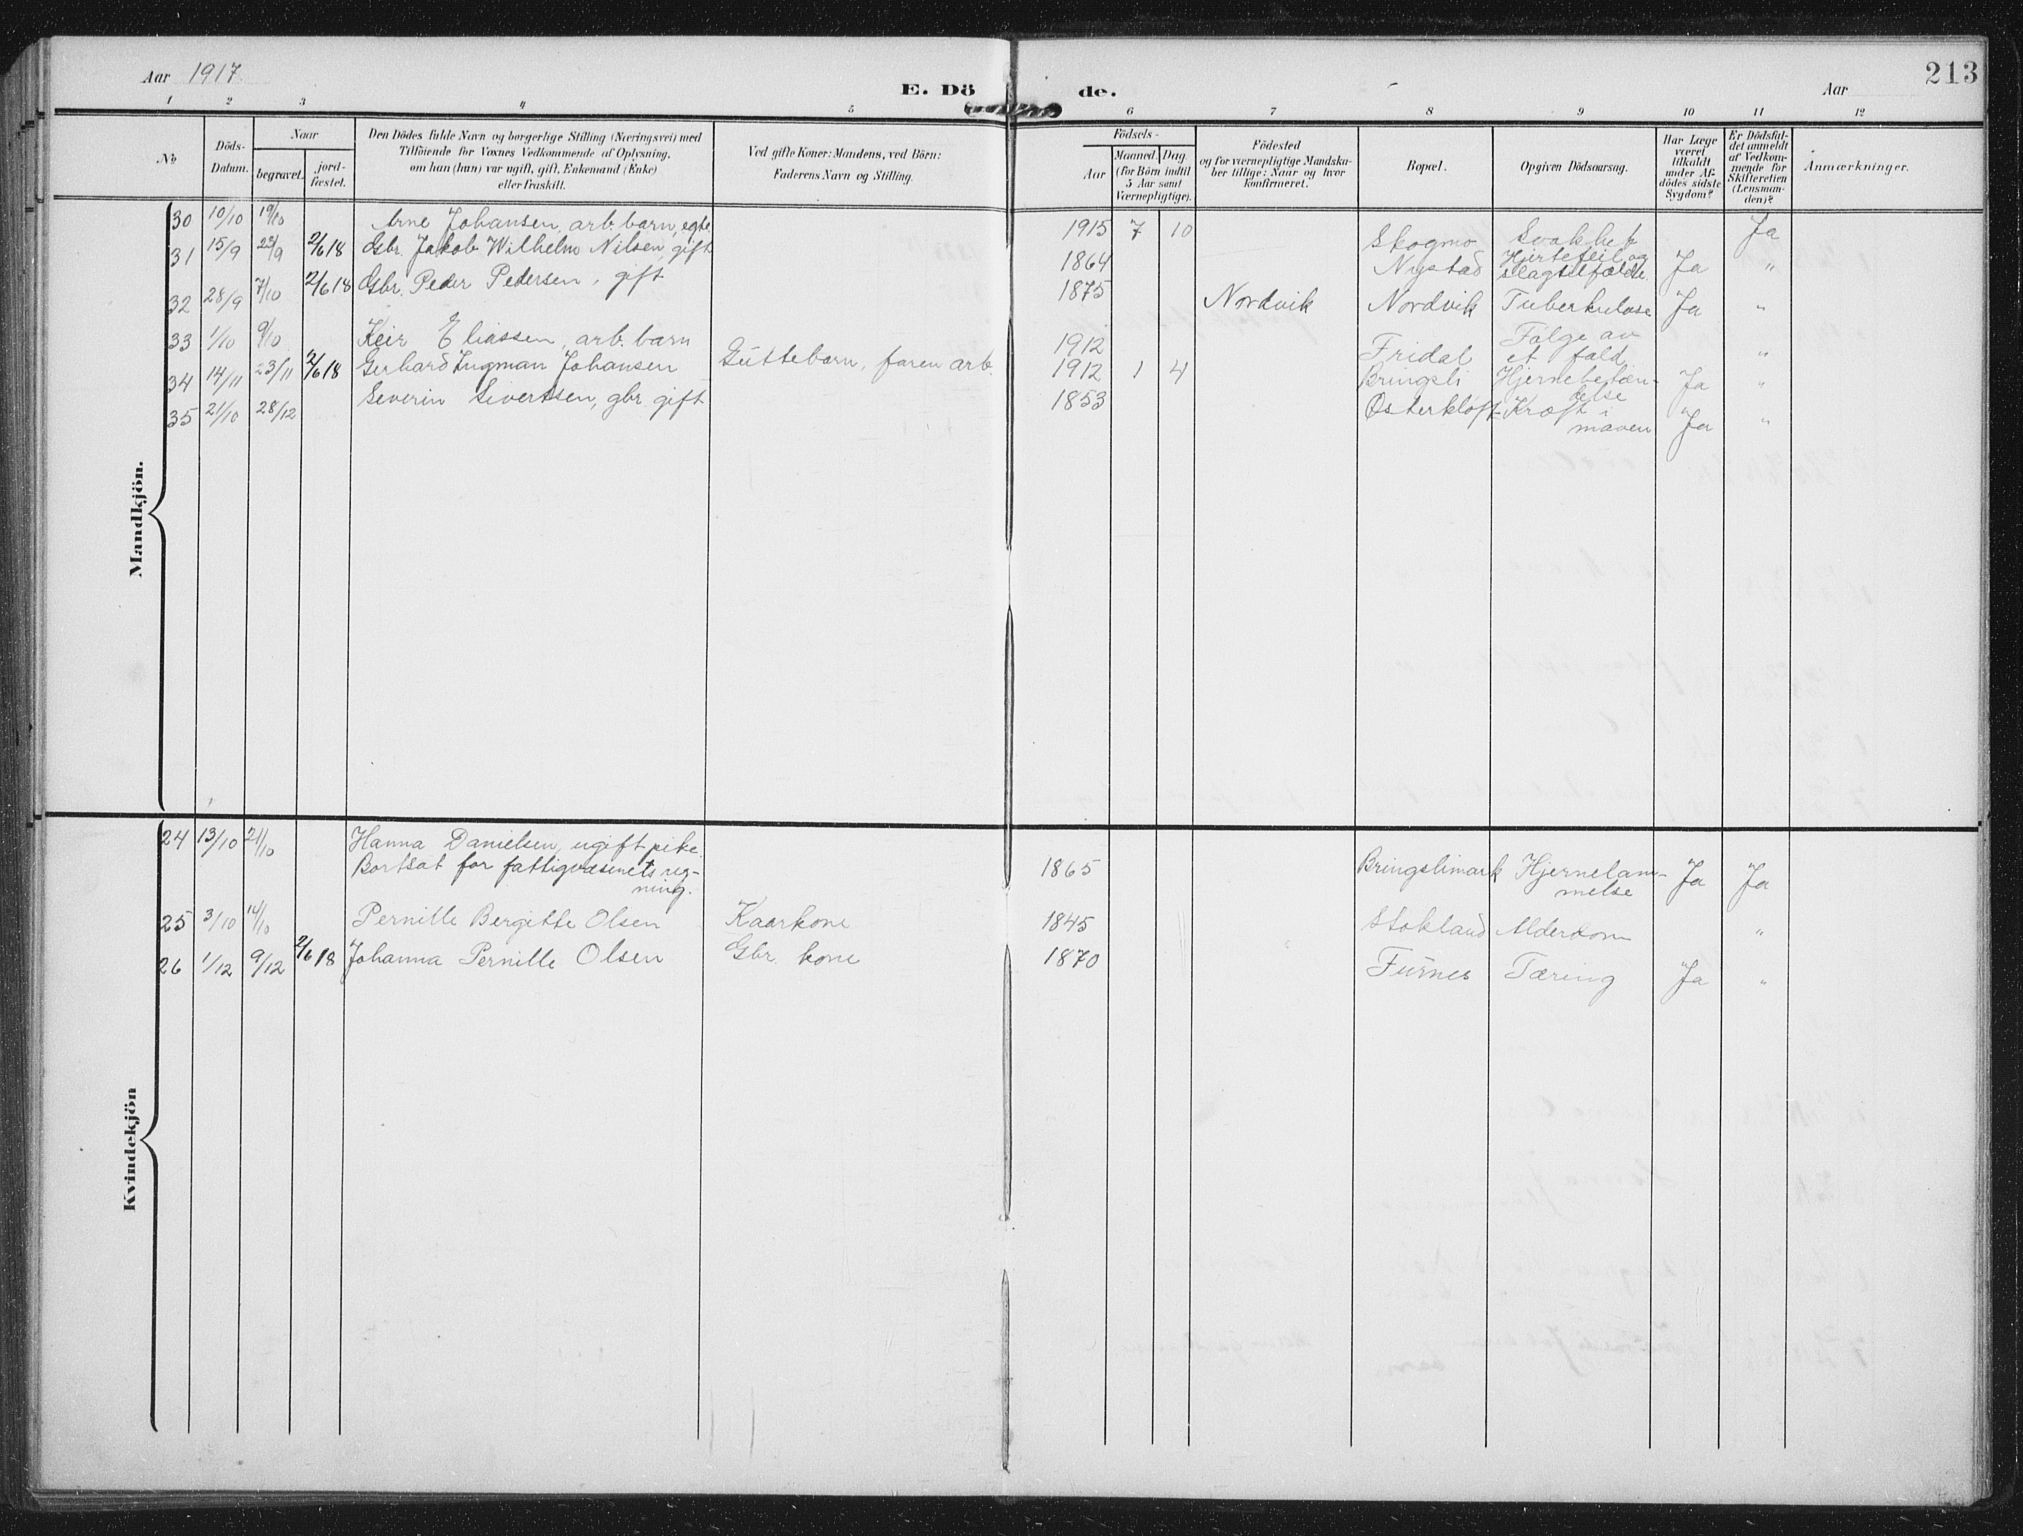 Aar 1917
E. Dö
de.
Aar
213
1 2 3 4 5 6 7 8 9 10 11 12
No
Döds-
Datum.
Naar
begravet.
jord-
fæstet.
Den Dödes fulde Navn og borgerlige Stilling (Næringsvei) med
Tilföiende for Voxnes Vedkommende af Oplysning,
om han (hun) var ugift, gift, Enkemand (Enke)
eller fraskilt.
Ved gifte Koner: Mandens, ved Börn:
Faderens Navn og Stilling.
Födsels-
Aar
Maaned.
Dag.
(for Börn indtil
5 Aar samt
Værnepligtige).
Födested
og for værnepligtige Mandska-
ber tillige: Naar og hvor
konfirmeret.
Bopæl.
Opgiven Dödsaarsag.
Har Læge
været
tilkaldt
under Af-
dödes sidste
Sygdom?
Er Dödsfal-
det anmeldt
af Vedkom-
mende for
Skifteretten
(Lensman-
den)?
Anmærkninger.
Mandkjön.
30 10/10 19/10 Arne Johansen, arb. barn, egte 1915 7 10 Skogmo Svakhet Ja
31 15/9 22/9 2/6 18 Gbr. Jakob Wilhelm Nilsen, gift 1864 Nystad Hjertefeil og
slagtilfælde. Ja "
32 28/9 7/10 2/6 18 Gbr. Peder Pedersen, gift 1875 Nordvik Nordvik Tuberkulose Ja "
33 1/10 9/10 Keir Eliassen, arb. barn 1912 Fridal Følge av
et fald "
34 14/11 23/11 2/6 18 Gerhard Ingman Johansen Guttebarn, faren arb. 1912 1 4 Bringsli Hjernebetæn-
delse Ja "
35 21/10 28/12 Severin Sivertsen, gbr gift 1853 Østerkløft Kræft i
maven Ja "
Kvindekjön
24 13/10 21/10 Hanna Danielsen, ugift pike.
Bortsat for fattigvæsenets reg-
ning. 1865 Bringslimark Hjernelam-
melse Ja Ja
25 3/10 14/10 Pernille Bergitte Olsen Kaarkone 1845 Stokland Alderdom "
26 1/12 9/12 2/6 18 Johanna Pernille Olsen Gbr kone 1870 Furnes Tæring Ja "